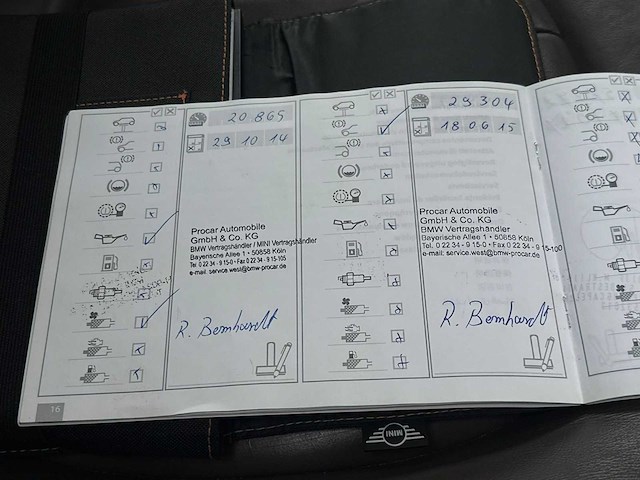 20 865
29 10 14
Procar Automobile
GmbH & Co. KG
BMW Vertragshändler / MINI Vertragshändler
Bayerische Allee 1 • 50858 Köln
Tel. 0 22 34 - 9 15-0 • Fax 0 22 34 - 9 15-105
e-mail: service.west@bmw-procar.de
R. Bernhardt
16
29 304
18 06 15
Procar Automobile
GmbH & Co. KG
BMW Vertragshändler
Bayerische Allee 1 • 50858 Köln
Tel. 0 22 34 - 9 15-0 • Fax 0 22 34 - 9 15-100
e-mail: service.west@bmw-procar.de
R. Bernhardt
MINI